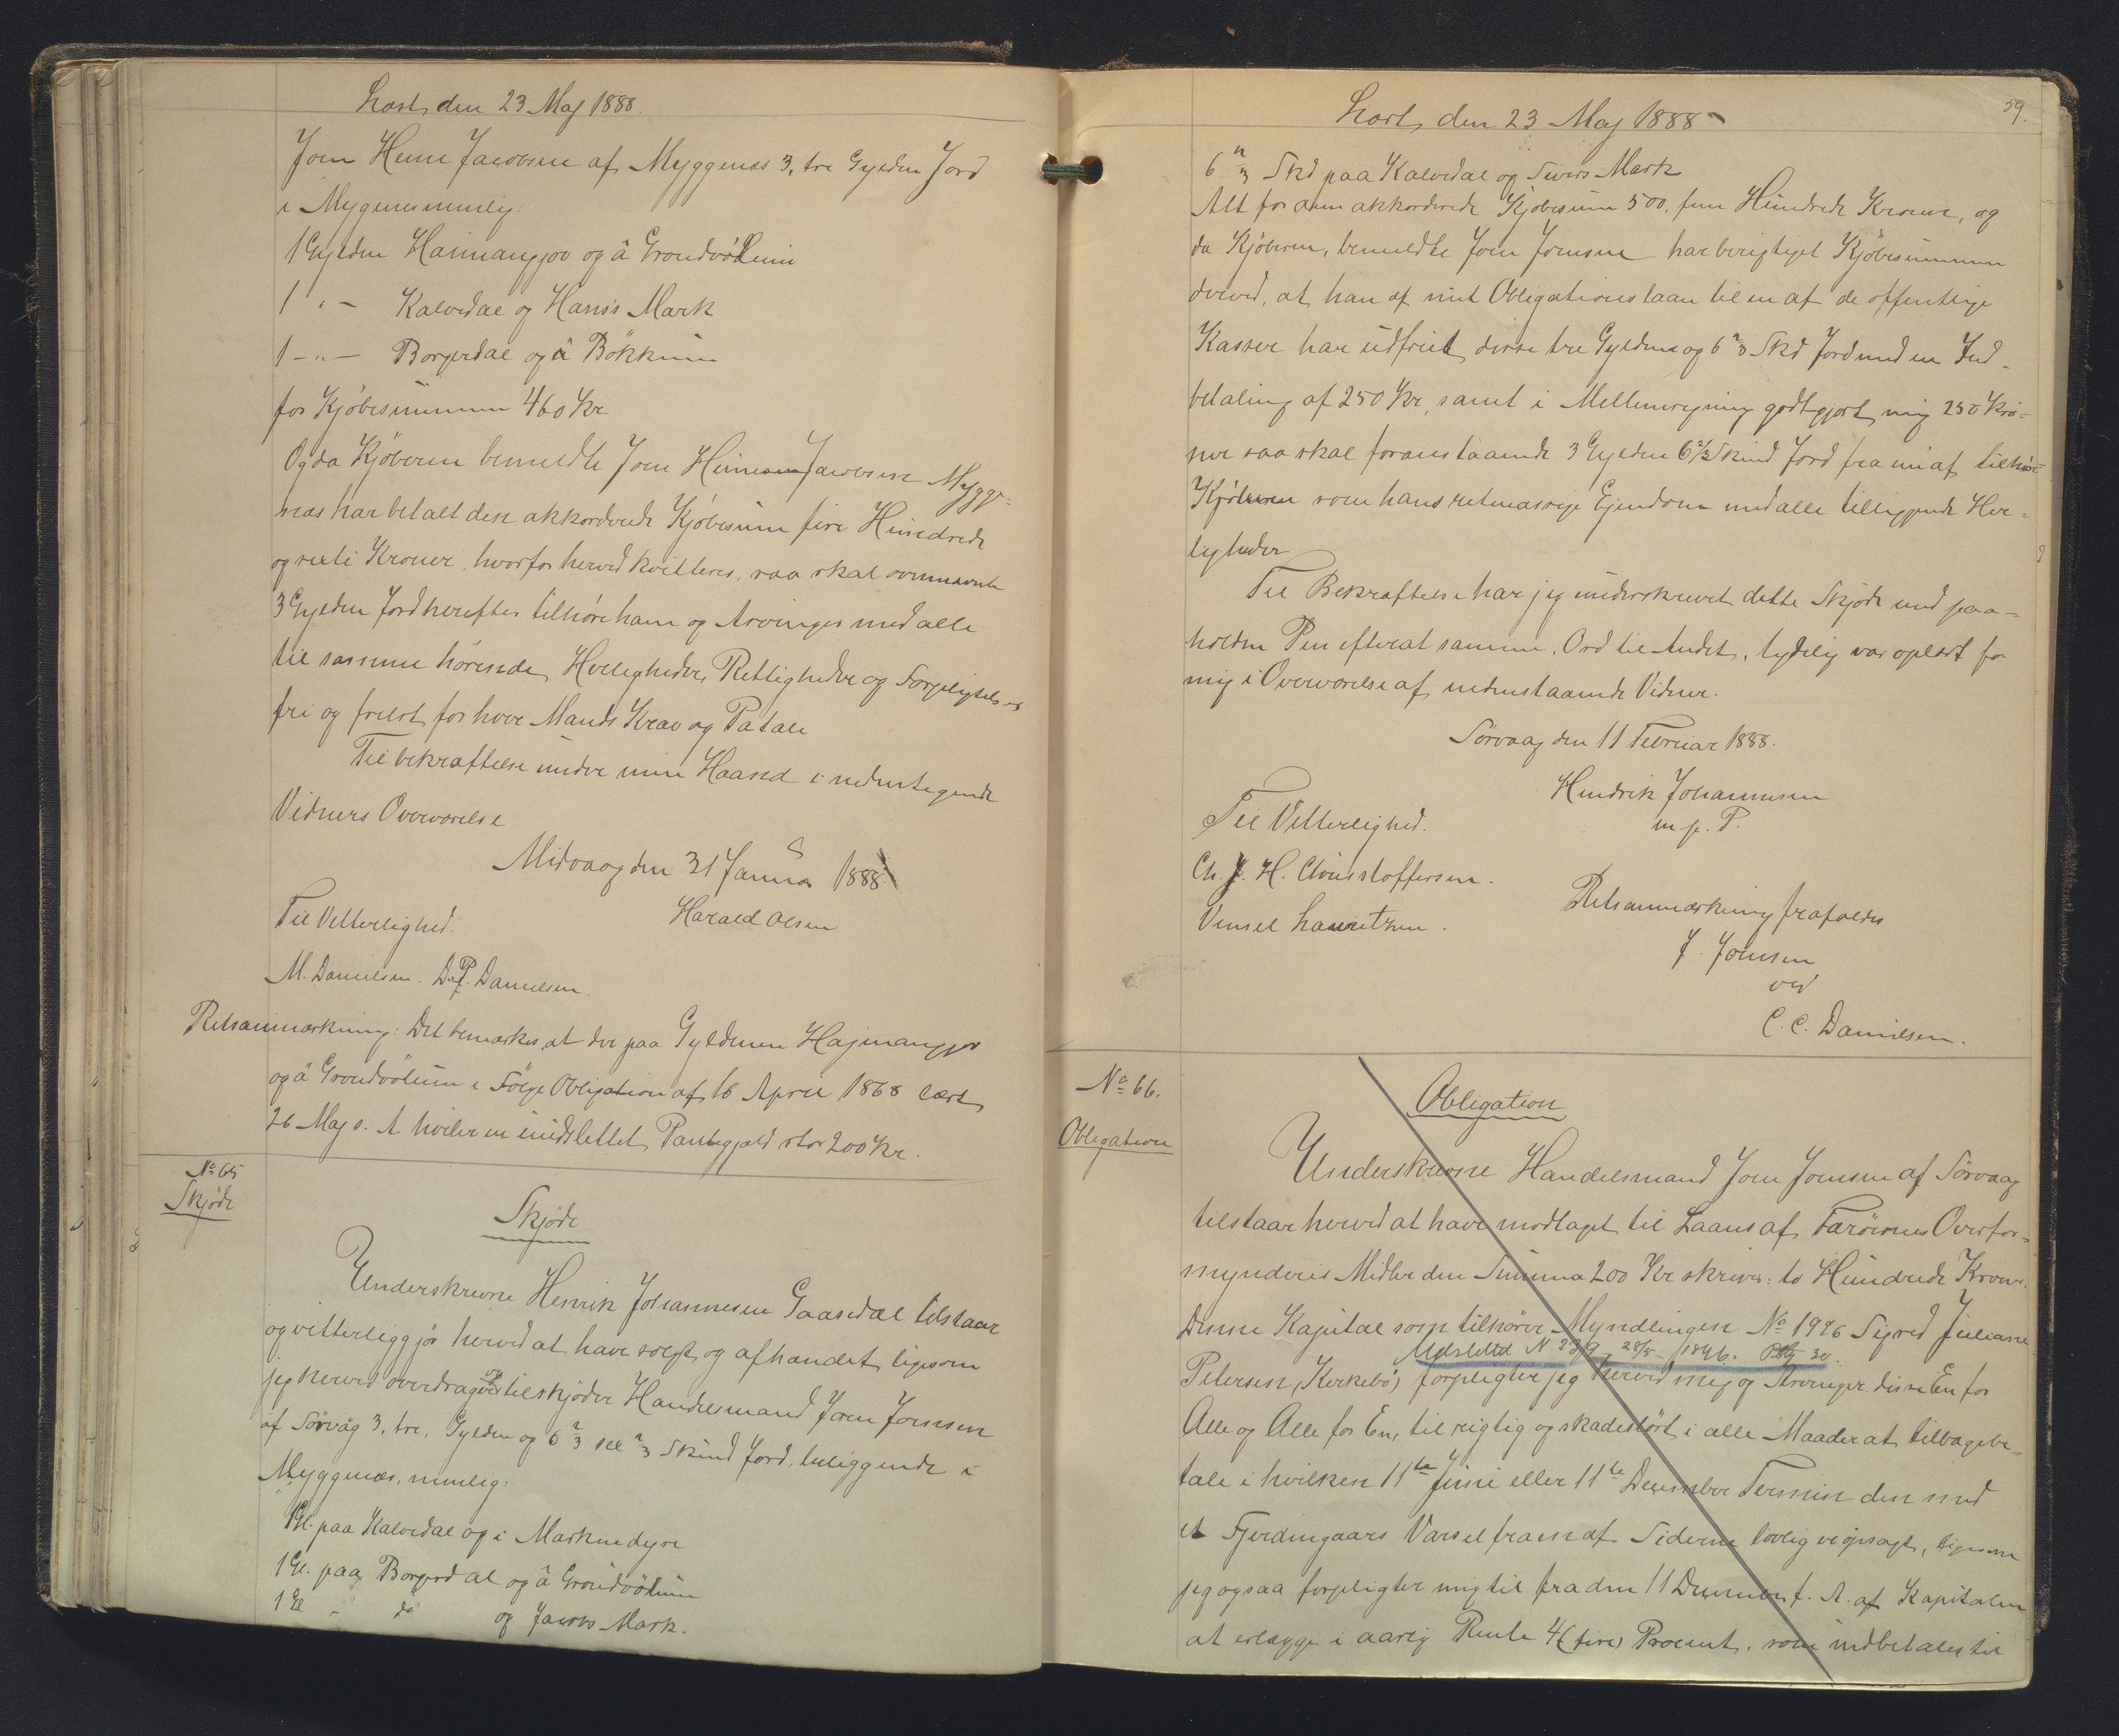 Læst den 23 Maj 1888.
Joen Heine Jacobsen af Myggenæs 3, tre Gylden Jord
i Mygenes nemlig:
1 Gylden Haimangjov og â Grondvölum
1 „ – Kalvedal og Hanus Mark
1 – „ – Borgerdal og â Bökkum
for Kjöbesummen 460 Kr
Og da Kjöberen bemeldte Joen Heinesen Jacobsen Mygge-
næs har betalt den akkorderede Kjöbesum fire Hundrede
og sexti Kroner, hvorfor herved kvitteres, saa skal ovennævnte
3 Gylden Jord herefter tilhöre ham og Arvinger med alle
til samme hörende Herligheder, Rettigheder og Forpligtelser
fri og frelst for hver Mands Krav og Patale
Til bekræftelse under min Haand i nedentegnede
Vidners Overværelse
Midvaag den 31 Januar 1888
Til Vitterlighed.
Harald Olsen
M. Danielsen. D. P. Danielsen.
Retsanmærkning: Det bemærkes, at der paa Gyldenen Hajmangjov
og â Grondvölum i Fölge Obligation af 16 April 1868 læst
26 Maj s. A. hviler en uudslettet Pantegjæld stor 200 Kr.
No 65
Skjöde
Skjöde
Underskrevne Henrik Johannesen Gaasedal tilstaar
og vitterliggjör herved at have solgt og afhændet ligesom
jeg herved overdrager og tilskjöder Handelsmand Joen Joensen
af Sörvåg 3, tre, Gylden og 6 2/3 sex 2/3 Skind Jord, beliggende i
Myggenæs, nemlig:
1 Gl. paa Kalvedal og i Marknedyre
1 Gl. paa Borgerdal og â Grondvölum
1 Gl – do og Jacobs Mark.
59.
Læst den 23 Maj 1888
6 2/3 Skd paa Kalvedal og Sivers Mark
Alt for den akkorderede Kjöbesum 500, fem Hundrede Kroner, og
da Kjöberen, bemeldte Joen Joensen har berigtiget Kjöbesummen
derved, at han af mit Obligationslaan til en af de offentlige
Kasser har udfriet disse tre Gylden og 6 2/3 Skd Jord med en Ind-
betaling af 250 Kr, samt i Mellemregning godtgjort mig 250 Kro-
ner saa skal foranstaaende 3 Gylden 6 2/3 Skind Jord fra nu af tilhöre
Kjöberen som hans retmæssige Ejendom med alle tilliggende Her-
ligheder
Til Bekræftelse har jeg underskrevet dette Skjöde med paa-
holden Pen efterat samme, Ord til Andet, tydelig var oplæst for
mig i Overværelse af nedenstaaende Vidner.
Sörvaag den 11 Februar 1888.
Hendrik Johannesen
m. p. P.
Til Vitterlighed.
Ch. H. Christoffersen.
Vensel Lauritzen.
Retsanmærkning frafaldes
J. Joensen
ved
C. C. Danielsen.
No 66.
Obligation
Obligation
Underskrevne Handelsmand Joen Joensen af Sörvaag
tilstaar herved at have modtaget til Laans af Færöernes Overfor-
mynderis Midler den Summa 200 Kr skriver: to Hundrede Kroner.
Denne Kapital som tilhörer Myndlingen No 1926 Sigrid Juliane
Udslettet N 28/5 1896. 30.
Petersen, (Kirkebö) forpligter jeg herved mig og Arvinger, disse En for
Alle og Alle for En, til rigtig og skadeslöst i alle Maader at tilbagebe-
tale i hvilken 11te Juni eller 11te December Termin den med
et Fjerdingaars Varsel fra en af Siderne lovlig er opsagt, ligesom
jeg ogsaa forpligter mig til fra den 11 December f. A. af Kapitalen
at erlægge i aarlig Rente 4 (fire) Procent, som indbetales til